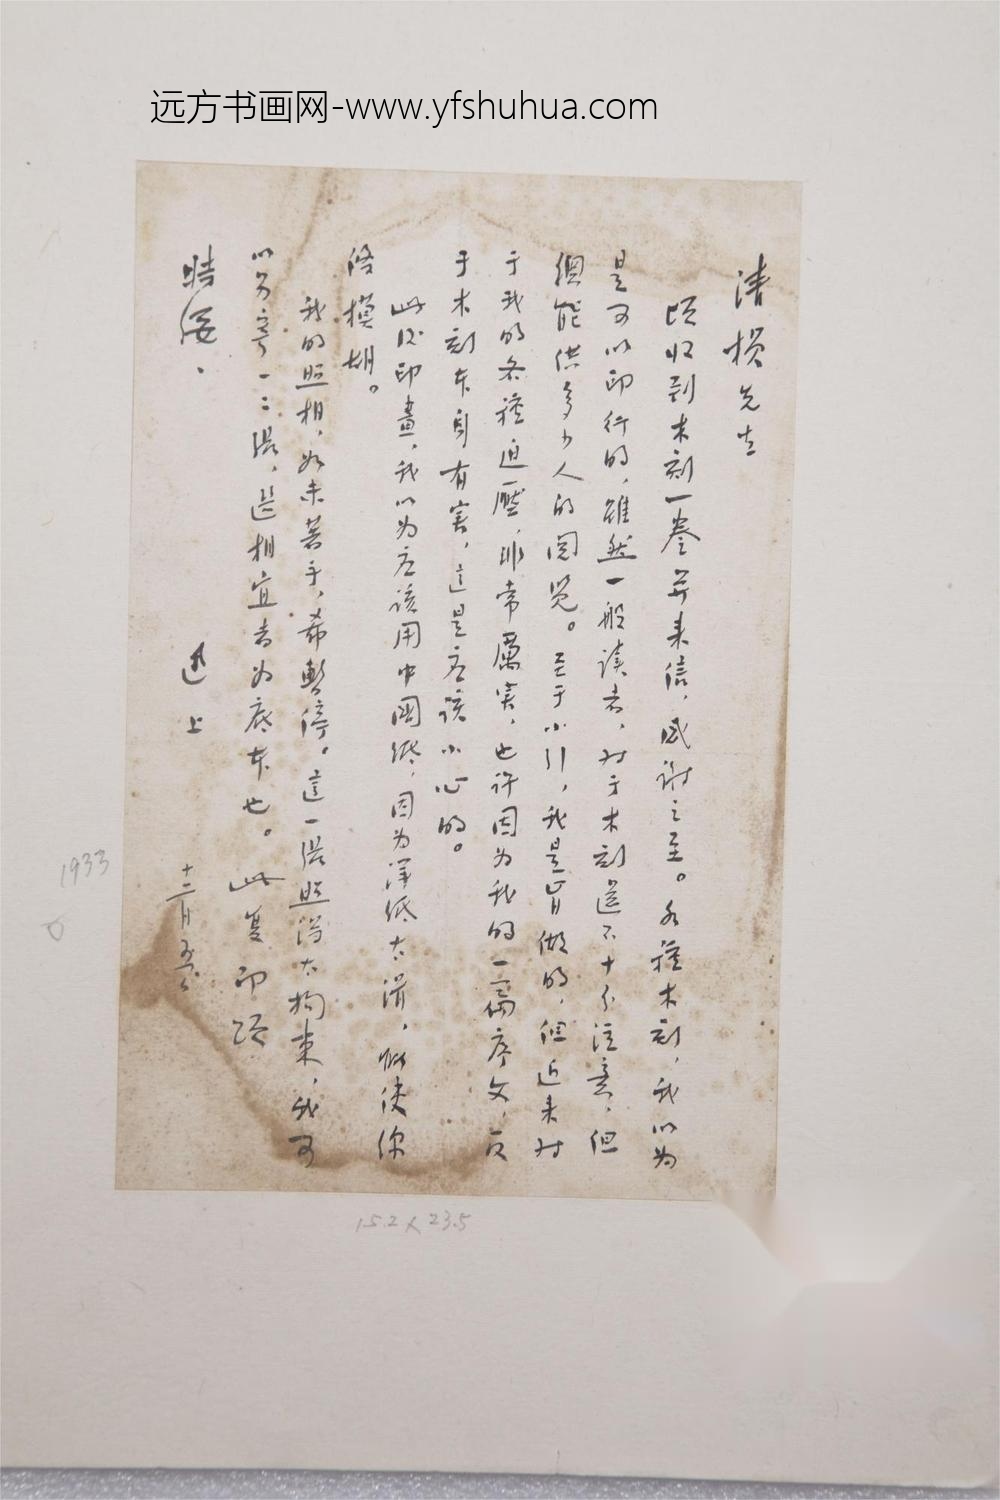 远方书画网-www.yfshuhua.com
清损先生
顷收到木刻一卷并来信，感谢之至。各种木刻，我以为
是可以印行的，虽然一般读者，对于木刻还不十分注意，但
总能供多少人的阅览。至于小引，我是肯做的，但近来对
于我的各种迫壓，非常厲害，也许因为我的一篇序文，反
于木刻本身有害，這是应该小心的。
此后印畫，我以为应该用中國纸，因为洋纸太滑，能使线
條模胡。
我的照相，如未著手，希暫停。這一張照得太拘束，我可
以另寄一二張，選相宜者为底本也。此复即颂
時绥。
迅上
十二月五夜
1933
15.2×23.5